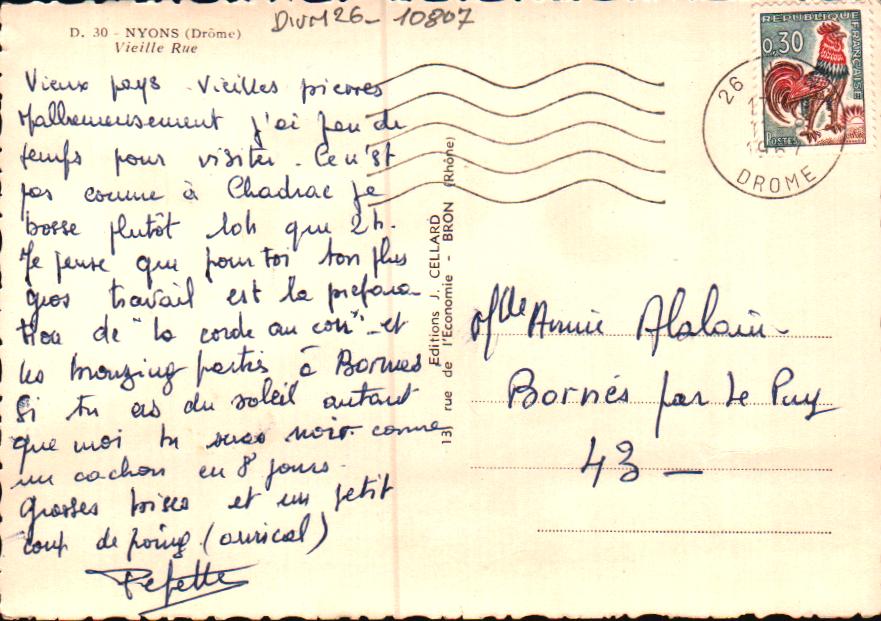 Divm26 - 10807
D. 30 - NYONS (Drôme)
Vieille Rue
Vieux pays Vieilles pierres
Malheureusement j'ai peu de
temps pour visiter. Ce n'est
pas comme à Chadrac je
bosse plutôt 10h que 2h.
Je pense que pour toi ton plus
gros travail est la prépara-
tion de "la corde au cou" et
les bronzing parties à Bornes
Si tu as du soleil autant
que moi tu seras noir comme
un cochon en 8 jours.
Grosses bises et un petit
coup de poing (amical)
Editions J. CELLARD
131 rue de l'Economie - BRON (Rhône)
REPUBLIQUE FRANÇAISE
0,30
POSTES
26
DROME
Mlle Annie
Bornes par Le Puy
43 —